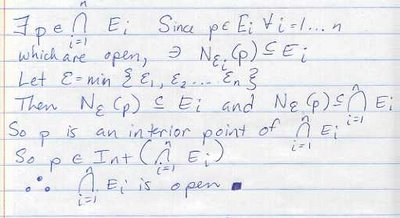 ∃ p ∈ ⋂ᵢ₌₁ⁿ Eᵢ Since p ∈ Eᵢ ∀ i=1... n
which are open, ∋ N_εᵢ(p) ⊆ Eᵢ
Let ε = min {ε₁, ε₂ ... εₙ}
Then N_ε(p) ⊆ Eᵢ and N_ε(p) ⊆ ⋂ᵢ₌₁ⁿ Eᵢ
So p is an interior point of ⋂ᵢ₌₁ⁿ Eᵢ
So p ∈ Int(⋂ᵢ₌₁ⁿ Eᵢ)
∴ ⋂ᵢ₌₁ⁿ Eᵢ is open ■